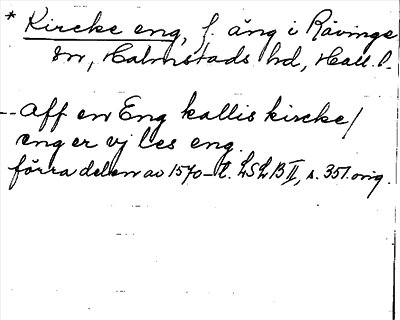 * Kircke eng, f. äng i Rävinge
sn, Halmstads hd, Hall. l.
-- aff en Eng kallis kircke/
eng er vj les eng.
förra delen av 1570-t. LSLB II, s. 351. orig.